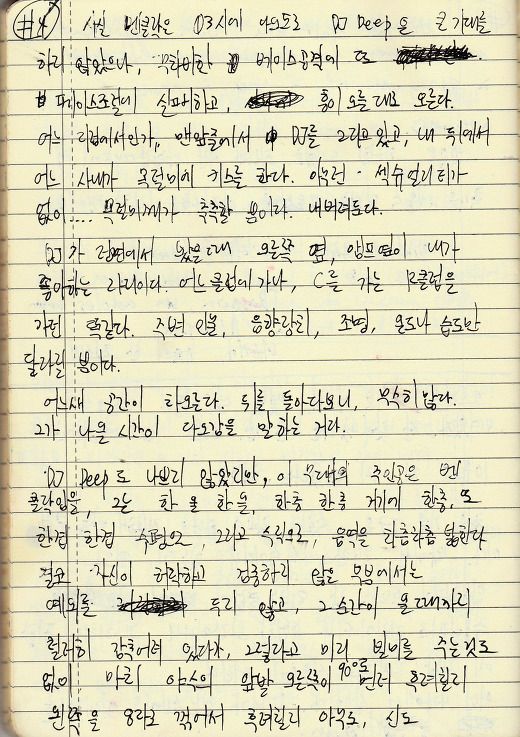 #4 사실 벤클락은 03시에 나오므로 DJ Deep을 큰 기대를
하지 않았으나, 무차비한 베이스공격에 또
페이스조절에 실패하고, 흥이 오를대로 오른다.
어느 지점에서인가, 맨 앞줄에서 DJ를 그리고 있고, 내 뒤에서
어느 사내가 목덜미에 키스를 한다. 아무런 섹슈얼리티가
없이.... 목덜미께가 축축할 뿐이다. 내버려둔다.
DJ가 정면에서 봤을때 오른쪽 옆, 앰프옆이 내가
좋아하는 자리이다. 어느클럽에 가나, C를 가든 R클럽을
가던 똑같다. 주변 인물, 음향장치, 조명, 온도나 습도만
달라질 뿐이다.
어느새 공간이 타오른다. 뒤를 돌아다보니, 무식히 많다.
그가 나올 시간이 다 되감을 말하는 거다.
DJ Deep도 나쁘지 않았지만, 이 무대의 주인공은 벤
클락임을, 그는 한 올 한 올, 한층 한층 거기에 한층, 또
한겹 한겹 수평으로, 그리고 수직으로, 음악을 차츰차츰 쌓는다
결코 자신이 허락하고 검증하지 않은 부분에서는
예외를 두지 않고, 그 순간이 올때까지
철저히 감추어져 있다가, 그렇다고 미리 빌미를 주는것도
없이 마치 야수의 앞발 오른쪽이 90°로 먼저 후려칠지
왼쪽을 8자로 꺾어서 후려칠지 아무도, 신도